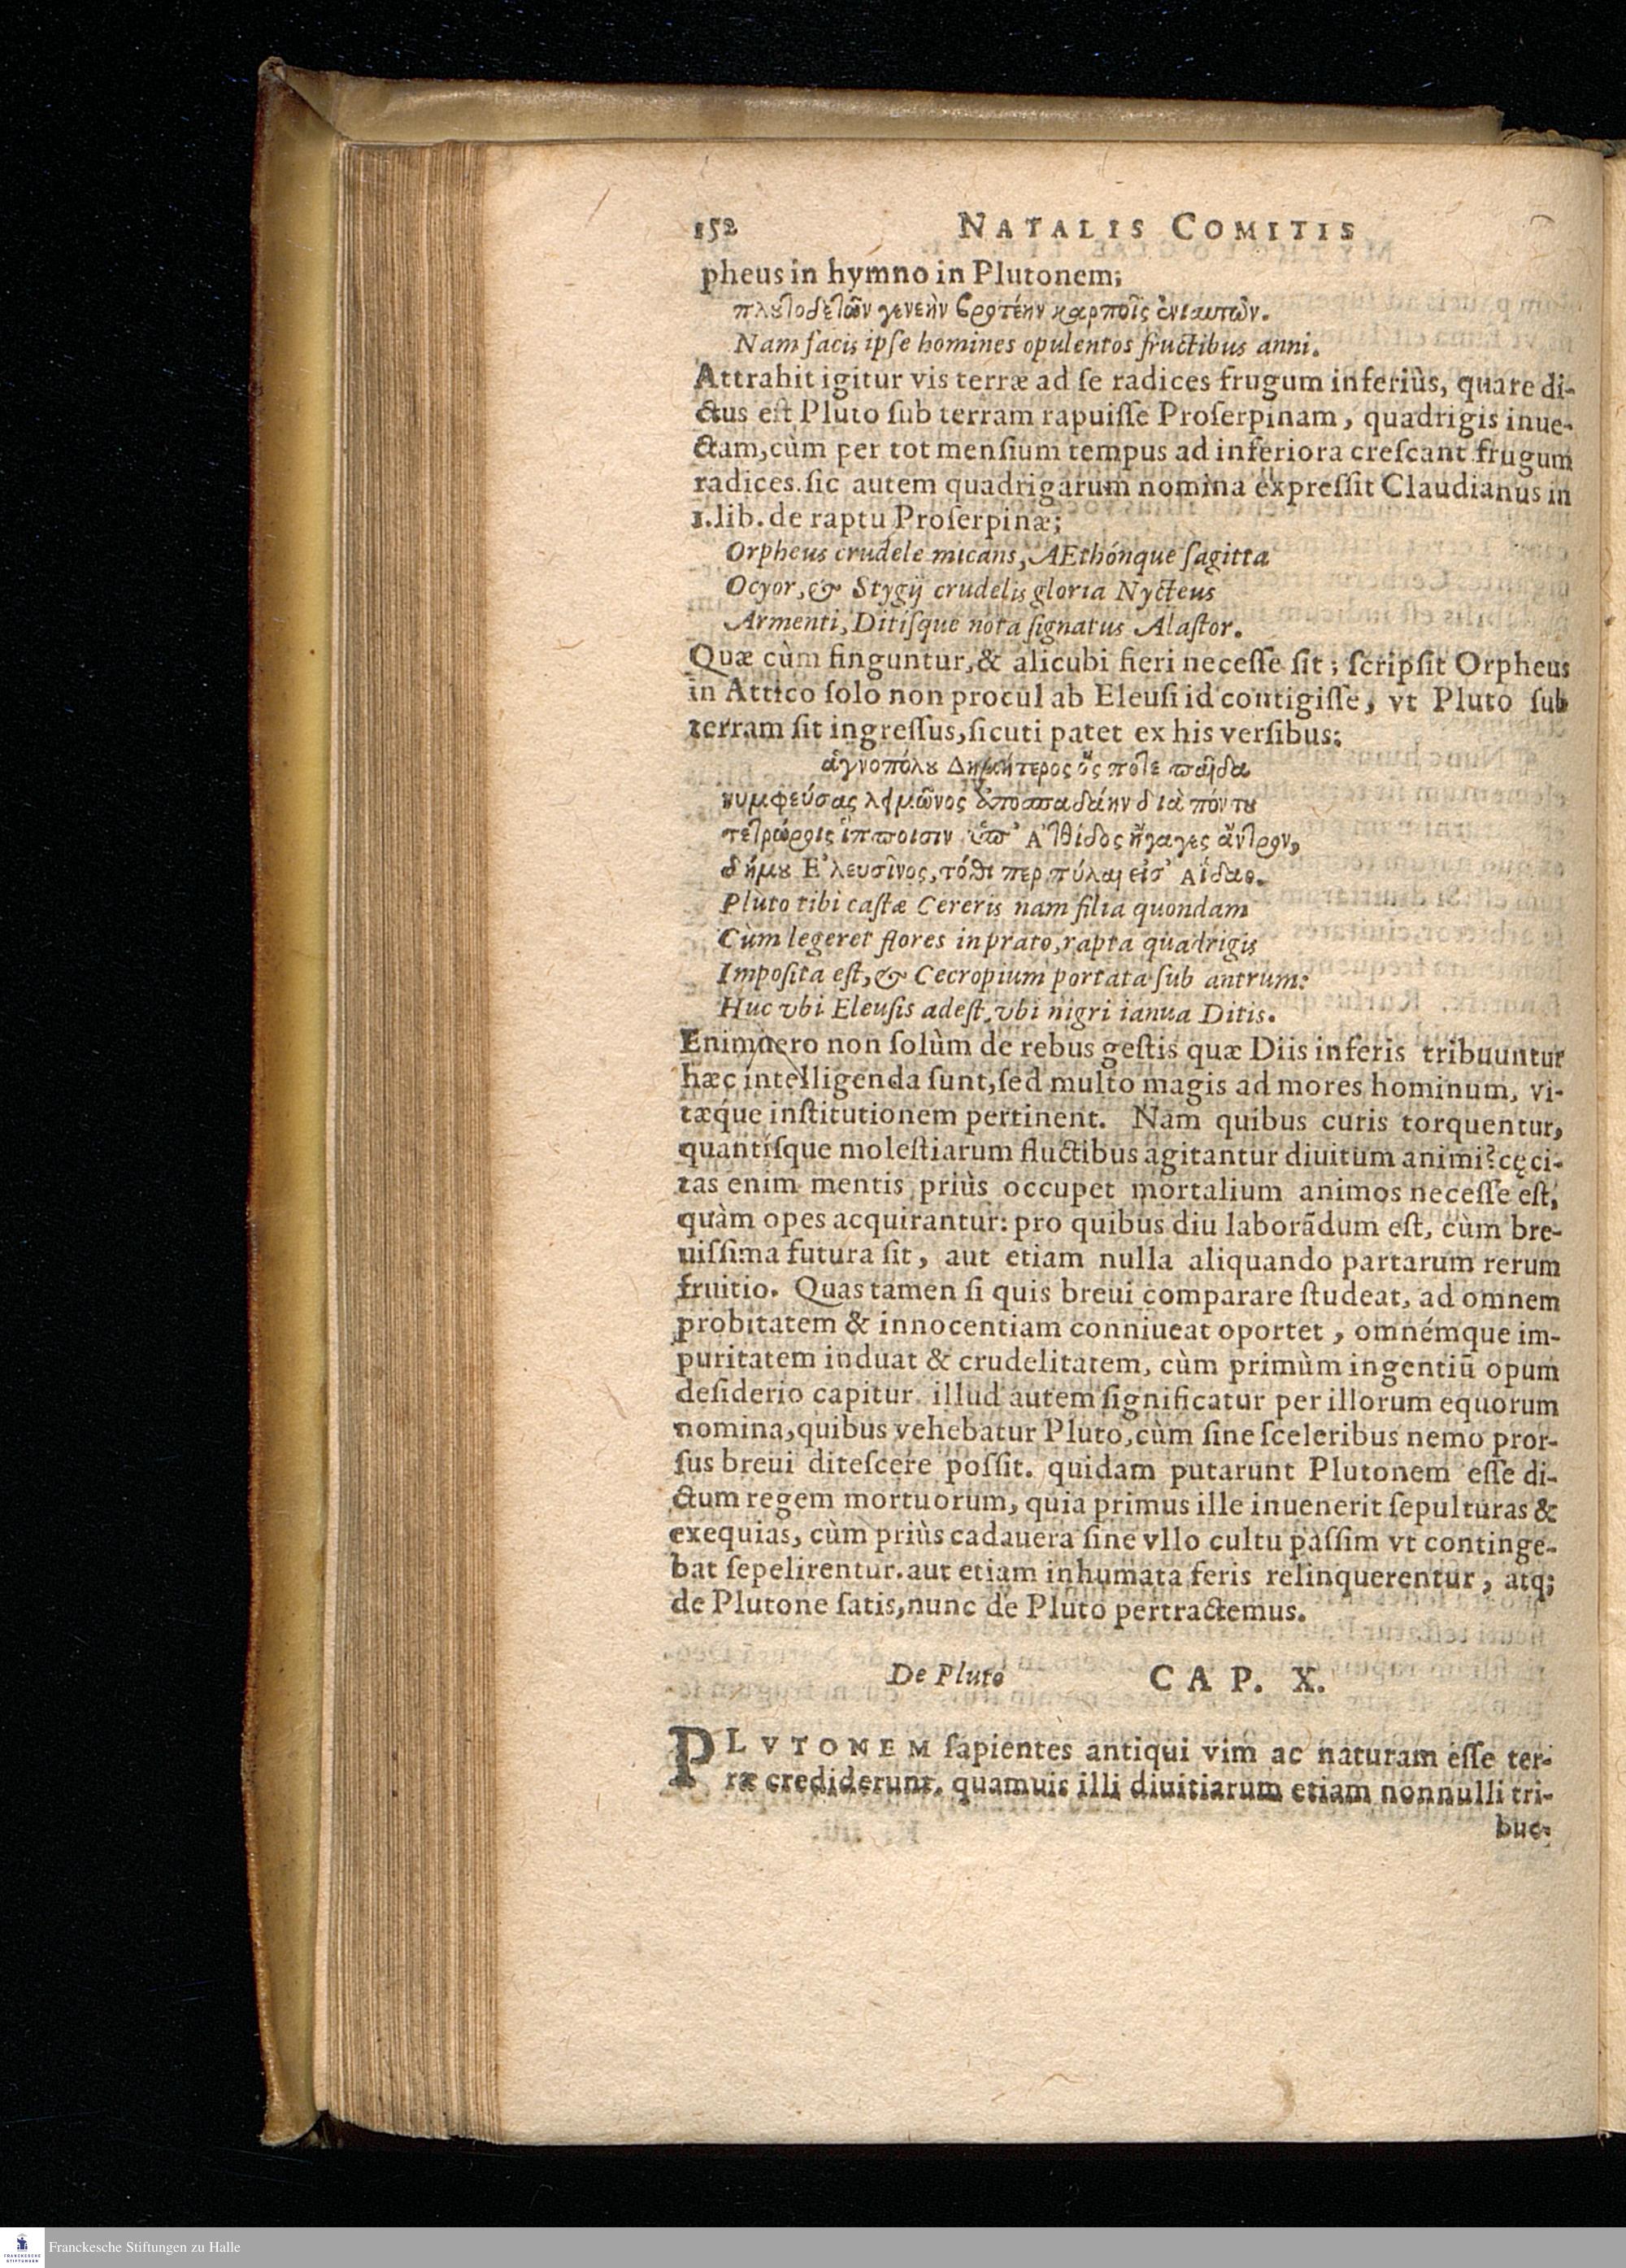 152 NATALIS COMITIS
pheus in hymno in Plutonem;
πλουτοδοτῶν γενεὴν βροτέην καρποῖς ἐνιαυτῶν.
Nam facis ipſe homines opulentos fructibus anni.
Attrahit igitur vis terræ ad ſe radices frugum inferiùs, quare di-
ctus eſt Pluto ſub terram rapuiſſe Proſerpinam, quadrigis inue-
ctam, cùm per tot menſium tempus ad inferiora creſcant frugum
radices. ſic autem quadrigarum nomina expreſſit Claudianus in
1. lib. de raptu Proſerpinæ;
Orpheus crudele micans, AEthónque ſagitta
Ocyor, & Stygij crudelis gloria Nycteus
Armenti, Ditiſque nota ſignatus Alaſtor.
Quæ cùm finguntur, & alicubi fieri neceſſe ſit; ſcripſit Orpheus
in Attico ſolo non procul ab Eleuſi id contigiſſe, vt Pluto ſub
terram ſit ingreſſus, ſicuti patet ex his verſibus:
ἁγνοπόλου Δημήτερος ὅς ποτε παῖδα
νυμφεύσας λειμῶνος ἀποσπαδίην διὰ πόντου
τετρώροις ἵπποισιν ὑπ' Ἀτθίδος ἤγαγες ἄντρον,
δήμου Ἐλευσῖνος, τόθι περ πύλαι εἰσ' Ἀΐδαο.
Pluto tibi caſtæ Cereris nam filia quondam
Cùm legeret flores in prato, rapta quadrigis
Impoſita eſt, & Cecropium portata ſub antrum:
Huc vbi Eleuſis adeſt, vbi nigri ianua Ditis.
Enimuero non ſolùm de rebus geſtis quæ Diis inferis tribuuntur
hæc intelligenda ſunt, ſed multo magis ad mores hominum, vi-
tæque inſtitutionem pertinent. Nam quibus curis torquentur,
quantíſque moleſtiarum fluctibus agitantur diuitum animi? cęci-
tas enim mentis priùs occupet mortalium animos neceſſe eſt,
quàm opes acquirantur: pro quibus diu laborãdum eſt, cùm bre-
uiſſima futura ſit, aut etiam nulla aliquando partarum rerum
fruitio. Quas tamen ſi quis breui comparare ſtudeat, ad omnem
probitatem & innocentiam conniueat oportet, omnémque im-
puritatem induat & crudelitatem, cùm primùm ingentiũ opum
deſiderio capitur. illud autem ſignificatur per illorum equorum
nomina, quibus vehebatur Pluto, cùm ſine ſceleribus nemo pror-
ſus breui diteſcere poſſit. quidam putarunt Plutonem eſſe di-
ctum regem mortuorum, quia primus ille inuenerit ſepulturas &
exequias, cùm priùs cadauera ſine vllo cultu paſſim vt continge-
bat ſepelirentur. aut etiam inhumata feris relinquerentur, atq;
de Plutone ſatis, nunc de Pluto pertractemus.
De Pluto CAP. X.
PLVTONEM ſapientes antiqui vim ac naturam eſſe ter-
ræ crediderunt, quamuis illi diuitiarum etiam nonnulli tri-
bue-
Franckesche Stiftungen zu Halle
FRANCKESCHE
STIFTUNGEN